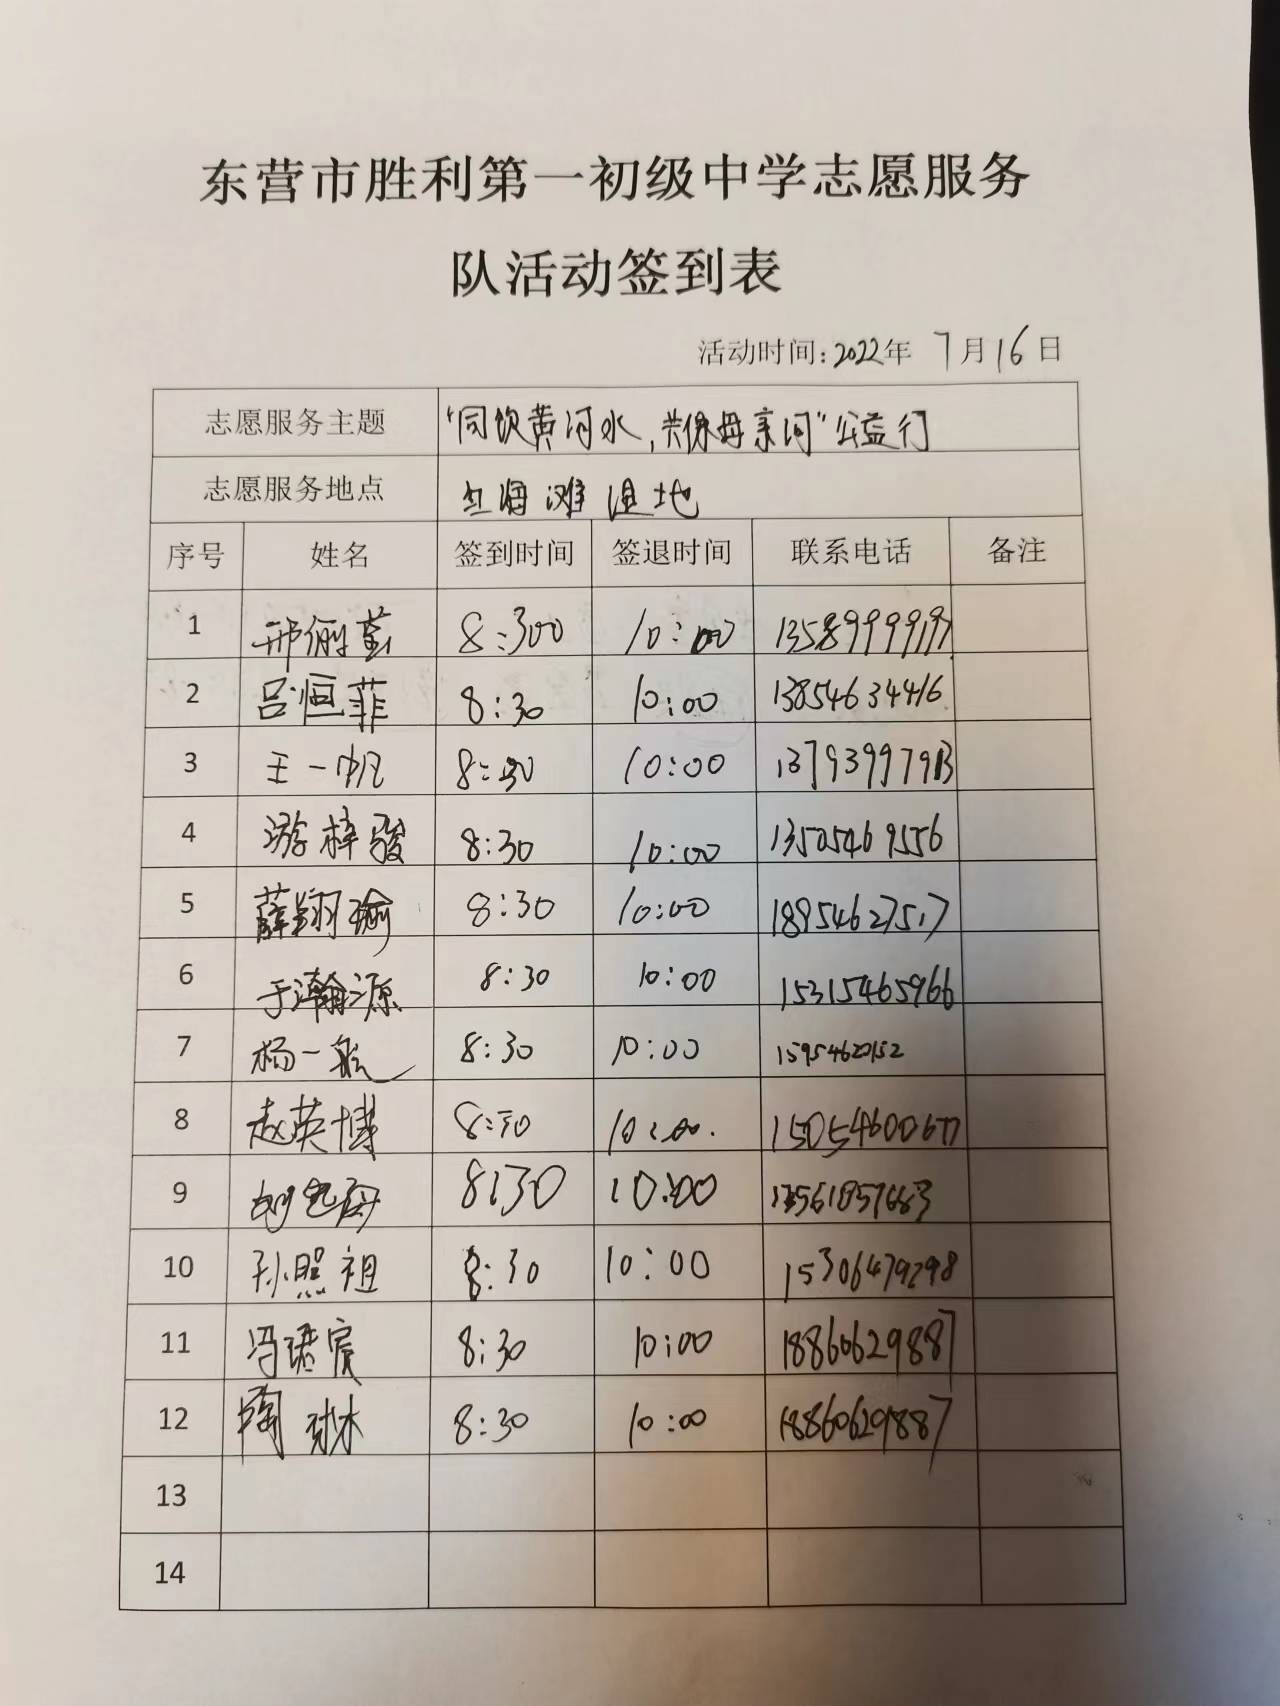 东营市胜利第一初级中学志愿服务
队活动签到表
活动时间:2022年 7月16日
志愿服务主题 "同饮黄河水,共保母亲河"公益行
志愿服务地点 红海滩湿地
序号 姓名 签到时间 签退时间 联系电话 备注
1 邢俪 8:300 10:00
2 吕恒菲 8:30 10:00 13854634416
3 王一帆 8:30 10:00
4 游梓骏 8:30 10:00 13505469556
5 薛翔瑜 8:30 10:00 18954627517
6 于瀚源 8:30 10:00 15315465966
7 杨一航 8:30 10:00 15954620152
8 赵英博 8:30 10:00.
9 8:30 10:00
10 孙照祖 8:30 10:00 15306479298
11 冯珺宸 8:30 10:00 18860629887
12 陶 8:30 10:00 18860629887
13
14